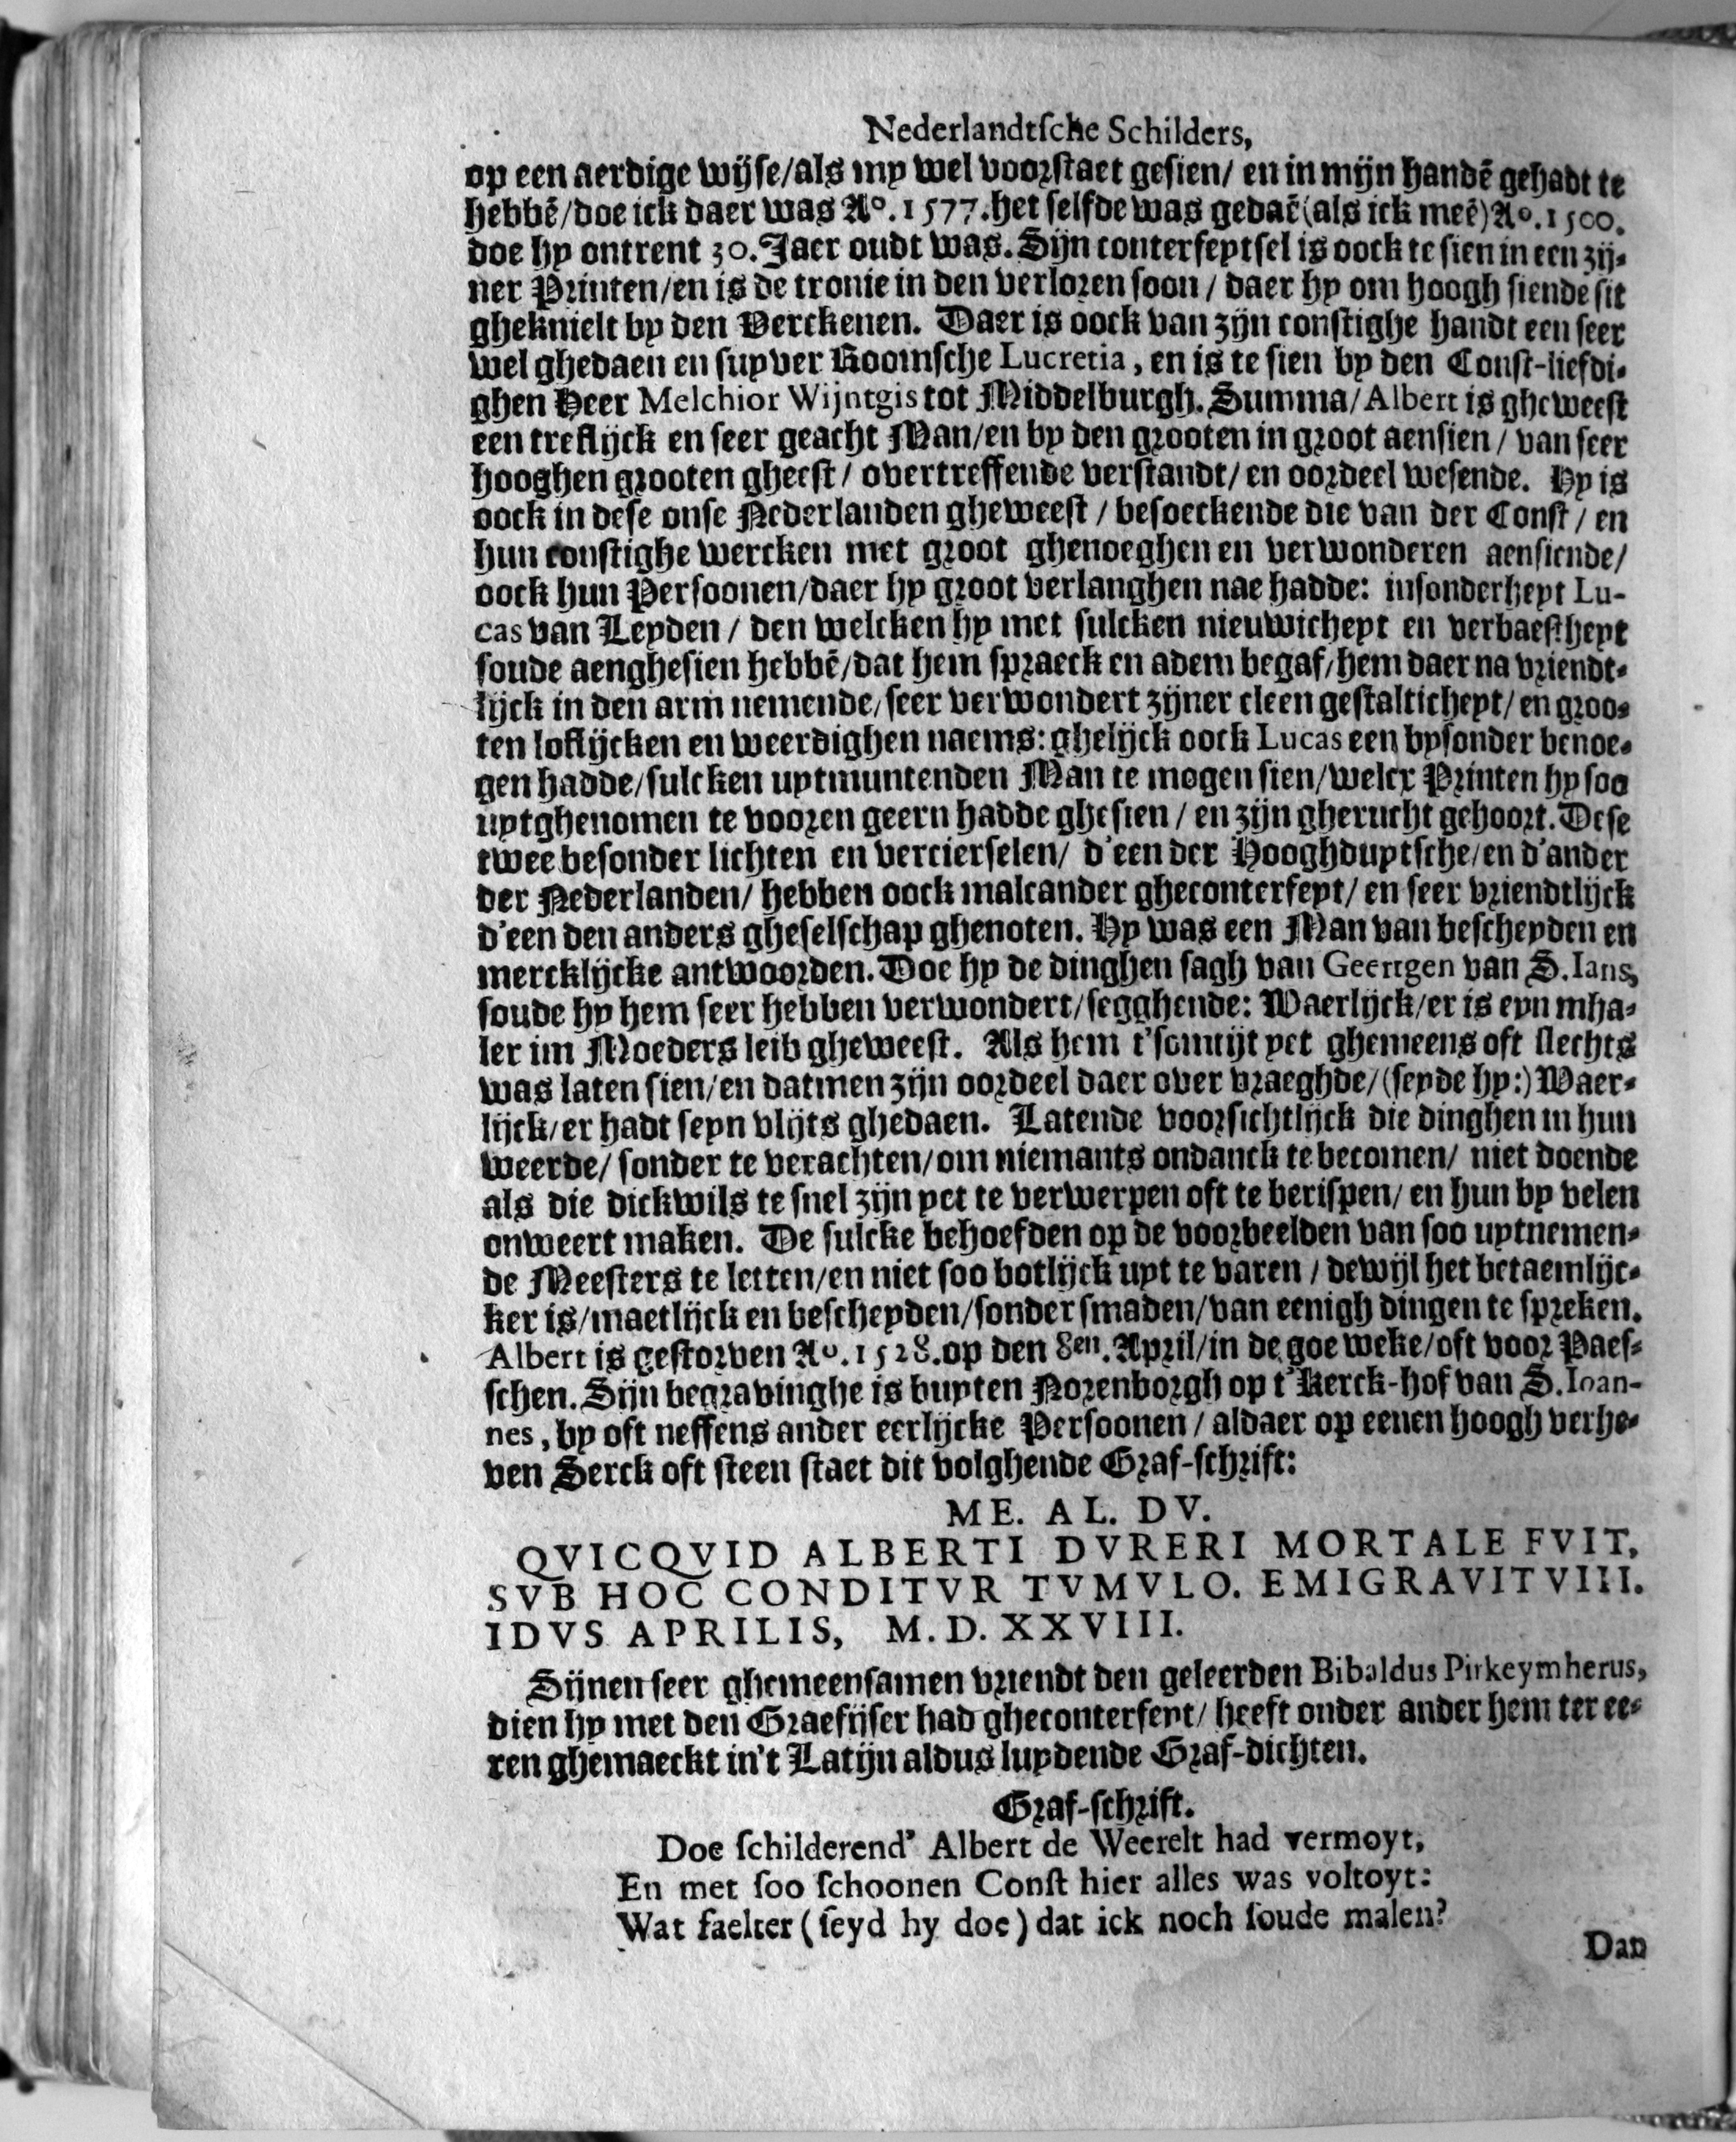 Nederlandtsche Schilders,
op een aerdige wijse/als my wel voorstaet gesien/ en in mijn handē gehadt te
hebbē/doe ick daer was Aº. 1577. het selfde was gedaē (als ick meē) Aº. 1500.
doe hy ontrent 30. Jaer oudt was. Sijn conterfeytsel is oock te sien in een zij-
ner Printen/en is de tronie in den verloren soon / daer hy om hoogh siende sit
gheknielt by den Verckenen. Daer is oock van zijn constighe handt een seer
wel ghedaen en suyver Roomsche Lucretia, en is te sien by den Const-liefdi-
ghen Heer Melchior Wijntgis tot Middelburgh. Summa/Albert is gheweest
een treflijck en seer geacht Man/en by den grooten in groot aensien / van seer
hooghen grooten gheest / overtreffende verstandt/ en oordeel wesende. Hy is
oock in dese onse Nederlanden gheweest / besoeckende die van der Const / en
hun constighe wercken met groot ghenoeghen en verwonderen aensiende/
oock hun Persoonen/daer hy groot verlanghen nae hadde: insonderheyt Lu-
cas van Leyden / den welcken hy met sulcken nieuwicheyt en verbaestheyt
soude aenghesien hebbē/dat hem spraeck en adem begaf/hem daer na vriendt-
lijck in den arm nemende/seer verwondert zijner cleen gestalticheyt/ en groo-
ten loflijcken en weerdighen naems: ghelijck oock Lucas een bysonder benoe-
gen hadde/sulcken uytmuntenden Man te mogen sien/welcx Printen hy soo
uytghenomen te vooren geern hadde ghesien / en zijn gherucht gehoort. Dese
twee besonder lichten en vercierselen/ d'een der Hooghduytsche/en d'ander
der Nederlanden/ hebben oock malcander gheconterfeyt/ en seer vriendtlijck
d'een den anders gheselschap ghenoten. Hy was een Man van bescheyden en
mercklijcke antwoorden. Doe hy de dinghen sagh van Geertgen van S. Ians,
soude hy hem seer hebben verwondert/segghende: Waerlijck/er is eyn mha-
ler im Moeders leib gheweest. Als hem t'somtijt yet ghemeens oft slechts
was laten sien/en datmen zijn oordeel daer over vraeghde/(seyde hy:) Waer-
lijck/er hadt seyn vlijts ghedaen. Latende voorsichtlijck die dinghen in hun
weerde/ sonder te verachten/om niemants ondanck te becomen/ niet doende
als die dickwils te snel zijn yet te verwerpen oft te berispen/ en hun by velen
onweert maken. De sulcke behoefden op de voorbeelden van soo uytnemen-
de Meesters te letten/en niet soo botlijck uyt te varen / dewijl het betaemlijc-
ker is/maetlijck en bescheyden/sonder smaden/van eenigh dingen te spreken.
Albert is gestorven Aº. 1528. op den 8en. April/in de goe weke/oft voor Paes-
schen. Sijn begravinghe is buyten Norenborgh op t'Kerck-hof van S. Ioan-
nes, by oft neffens ander eerlijcke Persoonen / aldaer op eenen hoogh verhe-
ven Serck oft steen staet dit volghende Graf-schrift:
ME. AL. DV.
QVICQVID ALBERTI DVRERI MORTALE FVIT,
SVB HOC CONDITVR TVMVLO. EMIGRAVIT VIII.
IDVS APRILIS, M.D.XXVIII.
Sijnen seer ghemeensamen vriendt den geleerden Bibaldus Pirkeymherus,
dien hy met den Graefijser had gheconterfeyt/ heeft onder ander hem ter ee-
ren ghemaeckt in't Latijn aldus luydende Graf-dichten.
Graf-schrift.
Doe schilderend' Albert de Weerelt had vermoyt,
En met soo schoonen Const hier alles was voltoyt:
Wat faelter (seyd hy doe) dat ick noch soude malen?
Dan